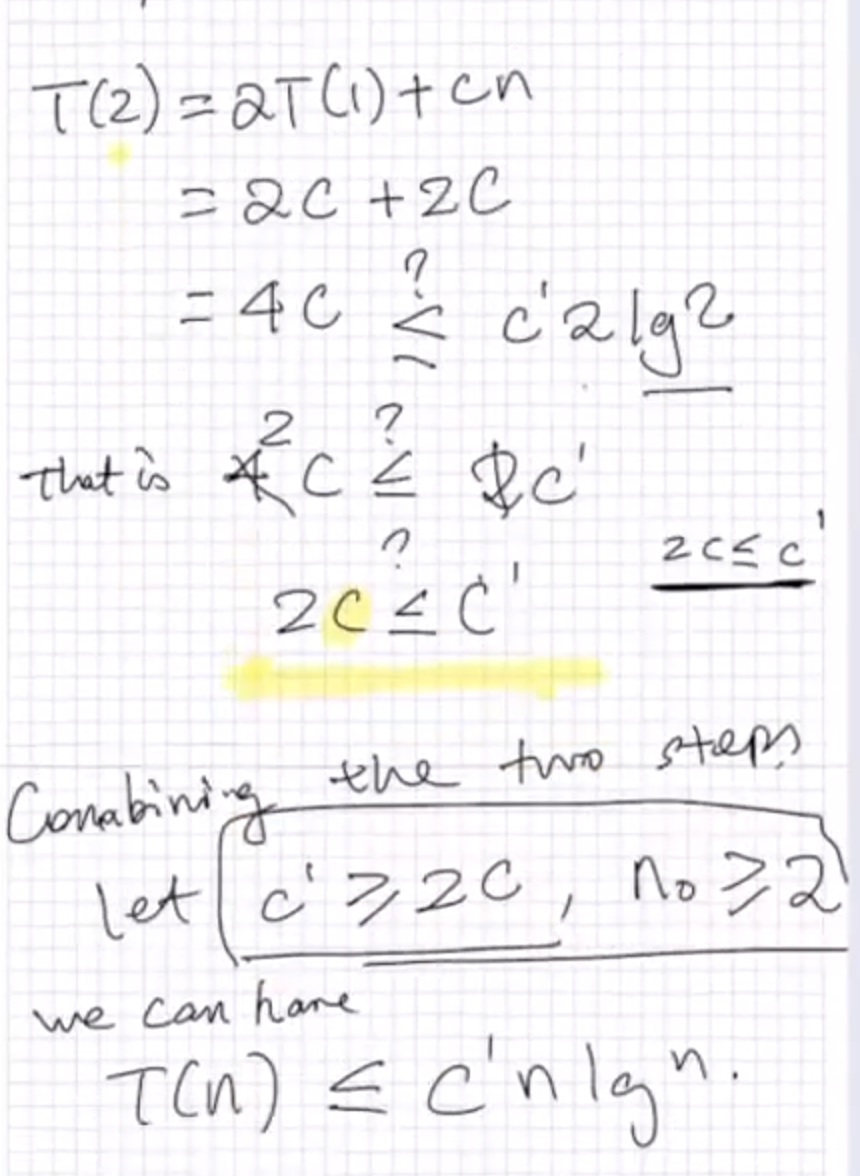 T(2) = 2T(1) + cn
= 2C + 2C
= 4C ≤? c'2 lg2
that is 4 2 C ≤? 2c'
2c ≤ c'
2C ≤? C'
Conabining the two steps
let c' ≥ 2C, n₀ ≥ 2
we can have
T(n) ≤ c'n lg n.